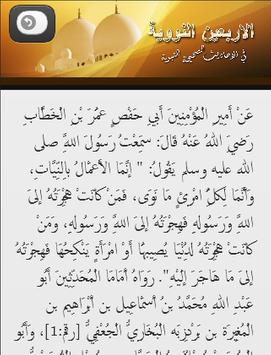 الأربعين النووية
في الأحاديث الصحيحة النبوية
عَنْ أَمِيرِ الْمُؤْمِنِينَ أَبِي حَفْصٍ عُمَرَ بْنِ الْخَطَّابِ
رَضِيَ اللهُ عَنْهُ قَالَ: سَمِعْتُ رَسُولَ اللَّهِ صلى
الله عليه وسلم يَقُولُ: " إنَّمَا الْأَعْمَالُ بِالنِّيَّاتِ،
وَإِنَّمَا لِكُلِّ امْرِئٍ مَا نَوَى، فَمَنْ كَانَتْ هِجْرَتُهُ إلَى
اللَّهِ وَرَسُولِهِ فَهِجْرَتُهُ إلَى اللَّهِ وَرَسُولِهِ، وَمَنْ
كَانَتْ هِجْرَتُهُ لِدُنْيَا يُصِيبُهَا أَوْ امْرَأَةٍ يَنْكِحُهَا فَهِجْرَتُهُ
إلَى مَا هَاجَرَ إلَيْهِ". رَوَاهُ إِمَامَا الْمُحَدِّثِينَ أَبُو
عَبْدِ اللهِ مُحَمَّدُ بنُ إِسْمَاعِيل بن إِبْرَاهِيم بن
الْمُغِيرَة بن بَرْدِزبَه الْبُخَارِيُّ الْجُعْفِيُّ [رقم:1]، وَأَبُو